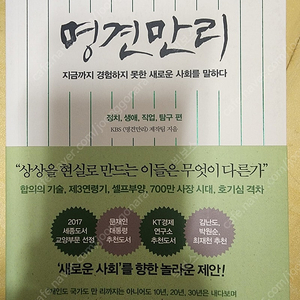 명견만리
지금까지 경험하지 못한 새로운 사회를 말하다
정치, 생애, 직업, 탐구 편
KBS 〈명견만리〉 제작팀 지음
“상상을 현실로 만드는 이들은 무엇이 다른가”
합의의 기술, 제3연령기, 셀프부양, 700만 사장 시대, 호기심 격차
2017
세종도서
교양부문 선정
문재인
대통령
추천도서
KT경제
연구소
추천도서
김난도,
박원순,
최재천 추천
‘새로운 사회’를 향한 놀라운 제안!
개인도 국가도 만 리까지는 아니어도 10년, 20년, 30년은 내다보며